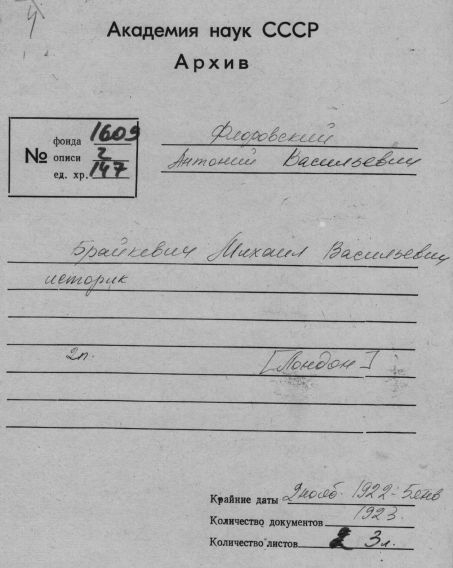 4
Академия наук СССР
Архив
№
фонда 1609
описи 2
ед. хр. 147
Флоровский
Антоний Васильевич
Брайкевич Михаил Васильевич
историк
2п. [Лондон]
Крайние даты 2 нояб. 1922 - 5 янв
Количество документов 1923.
Количество листов 2 3л.